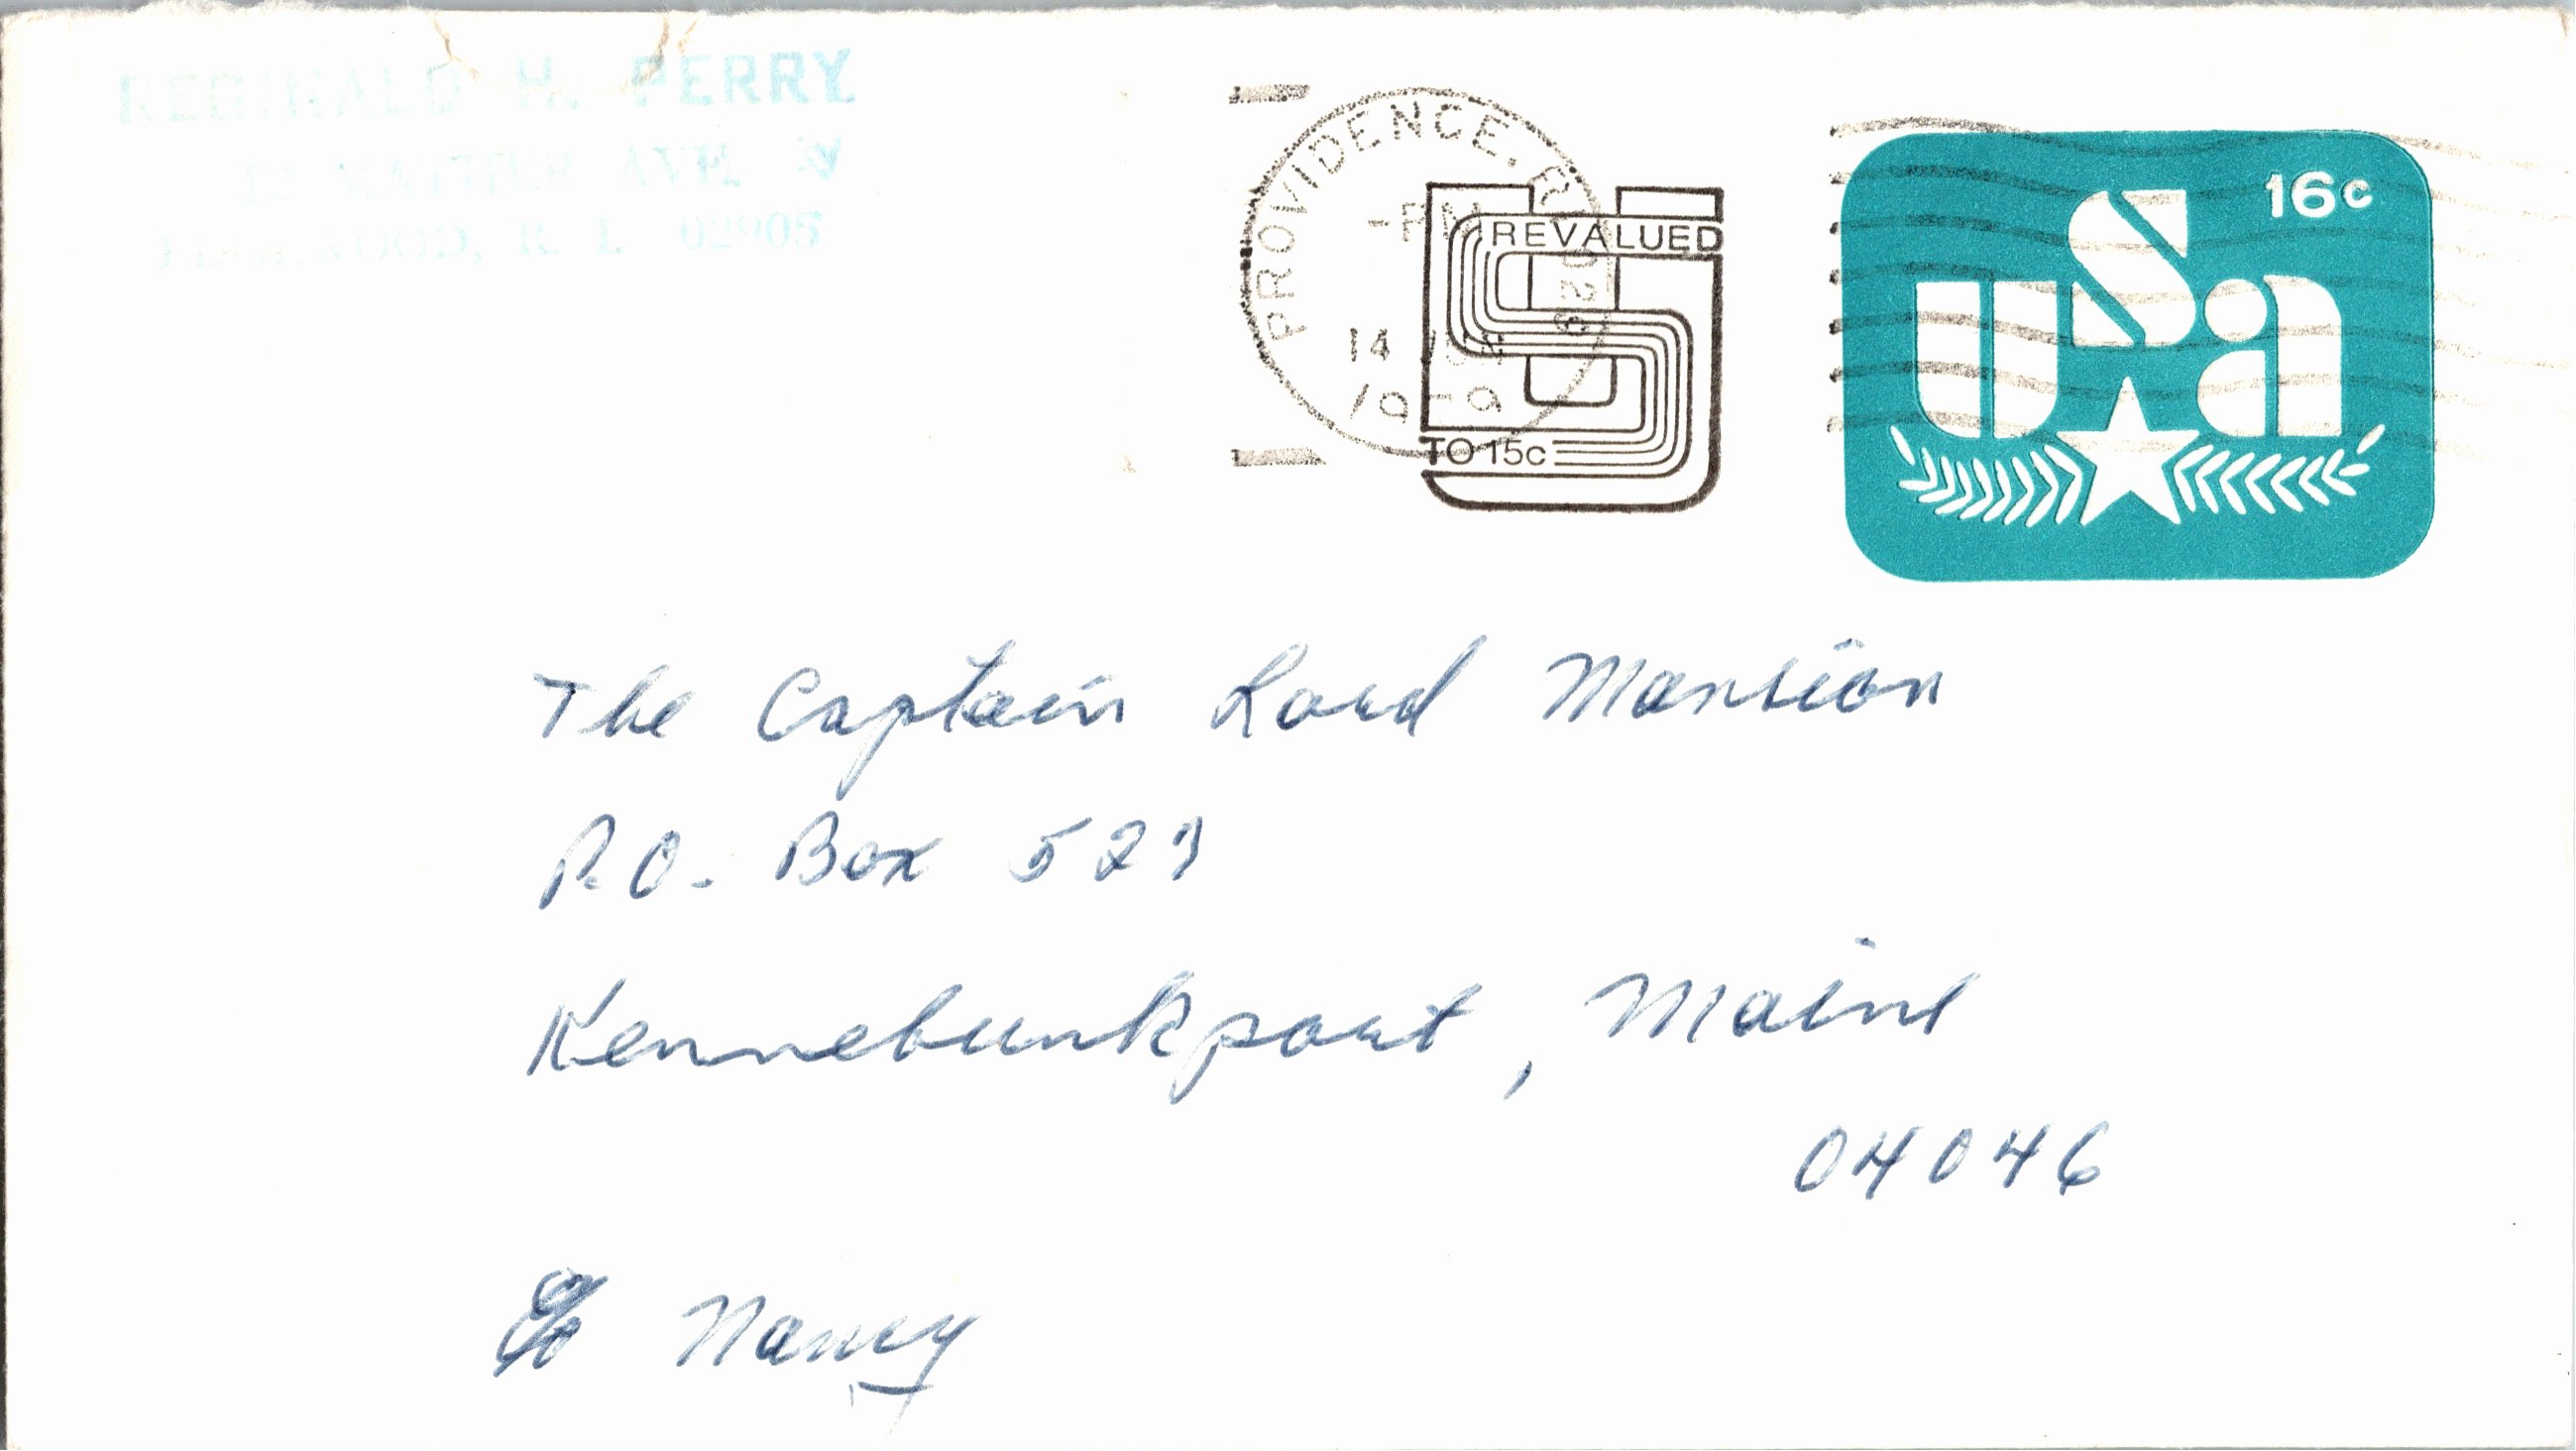 REGINALD H. PERRY
AVE.
R. I. 02905
PROVIDENCE, R
PM
14 JUN
REVALUED
TO 15c
16c
USa
The Captain Lord Mansion
P.O. Box 527
Kennebunkport, Maine
04046
℅ Nancy